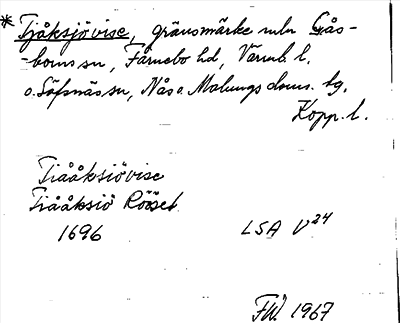 * Tjåksjövise, gränsmärke mln Gås-
-borns sn, Färnebo hd, Värml. l.
o. Säfsnäs sn, Nås o. Malungs doms. tg.
Kopp. l.
Tiååksiövise
Tiååksiö Rööset
1696 LSA V24
FW. 1967